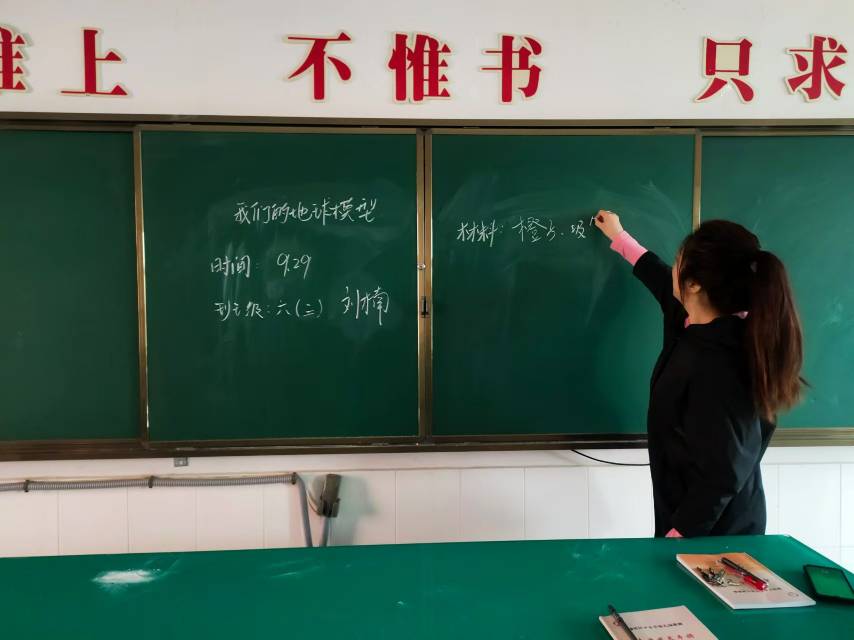 惟上 不惟书 只求
我们的地球模型
时间: 9.29
班级:六(二) 刘楠
材料: 橙